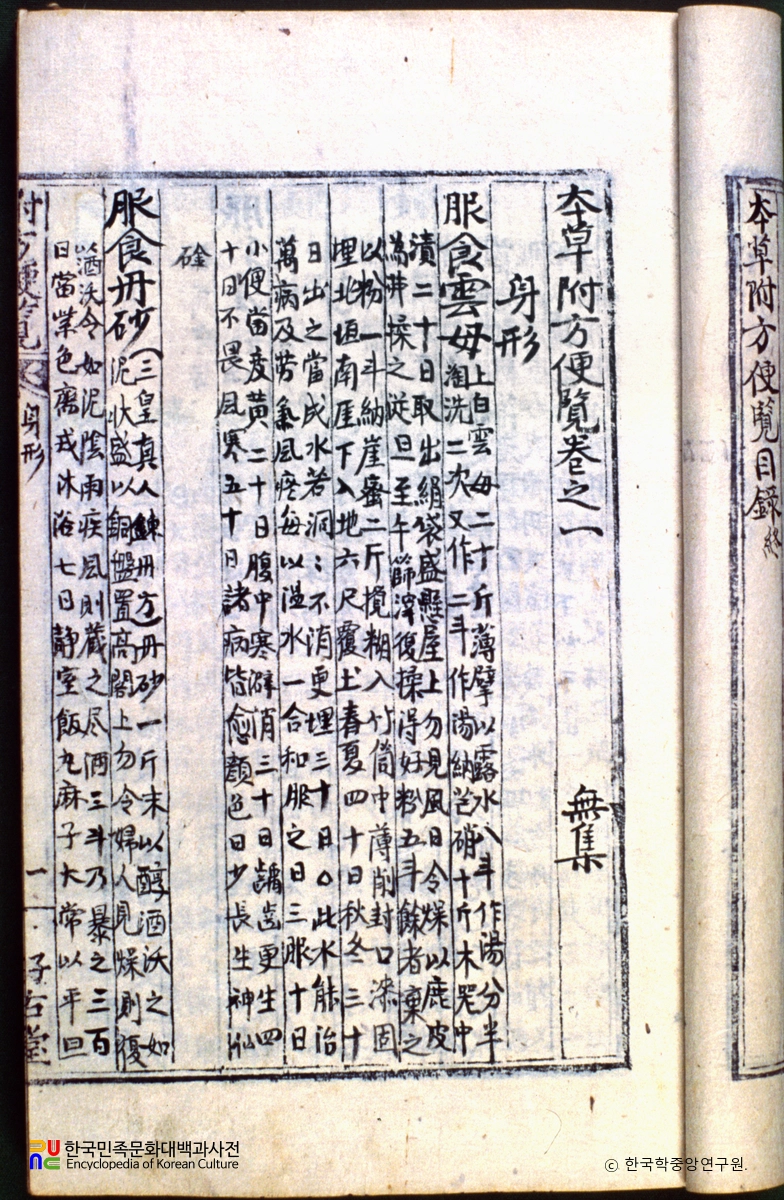 夲草附方便覧目録 終
夲草附方便覧卷之一 無集
身形
服食雲母 上白雲母二十斤薄擘以露水八斗作湯分半
淘洗二次又作二斗作湯納芒硝十斤木器中
漬二十日取出絹袋盛懸屋上勿見風日令燥以鹿皮
為韛揉之從旦至午篩滓復揉得好粉五斗餘者棄之
以粉一斗納崖蜜二斤攪糊入竹筒中薄削封口漆固
埋北垣南厓下入地六尺覆土春夏四十日秋冬三十
日出之當成水若洞〻不消更埋三十日○此水能治
萬病及劳氣風疼每以温水一合和服之日三服十日
小便當変黄二十日腹中寒澼消三十日齲齒更生四
十日不畏風寒五十日諸病皆愈顔色日少長生神仙
硂
服食丹砂(三皇真人鍊丹方)丹砂一斤末以醇酒沃之如
泥狀盛以銅盤置高閣上勿令婦人見燥則復
以酒沃令如泥陰雨疾風則蔵之尽酒三斗乃暴之三百
日當紫色齋戒沐浴七日静室飯丸麻子大常以平旦
附方便覧 身形 一
한국민족문화대백과사전
Encyclopedia of Korean Culture
ⓒ 한국학중앙연구원.